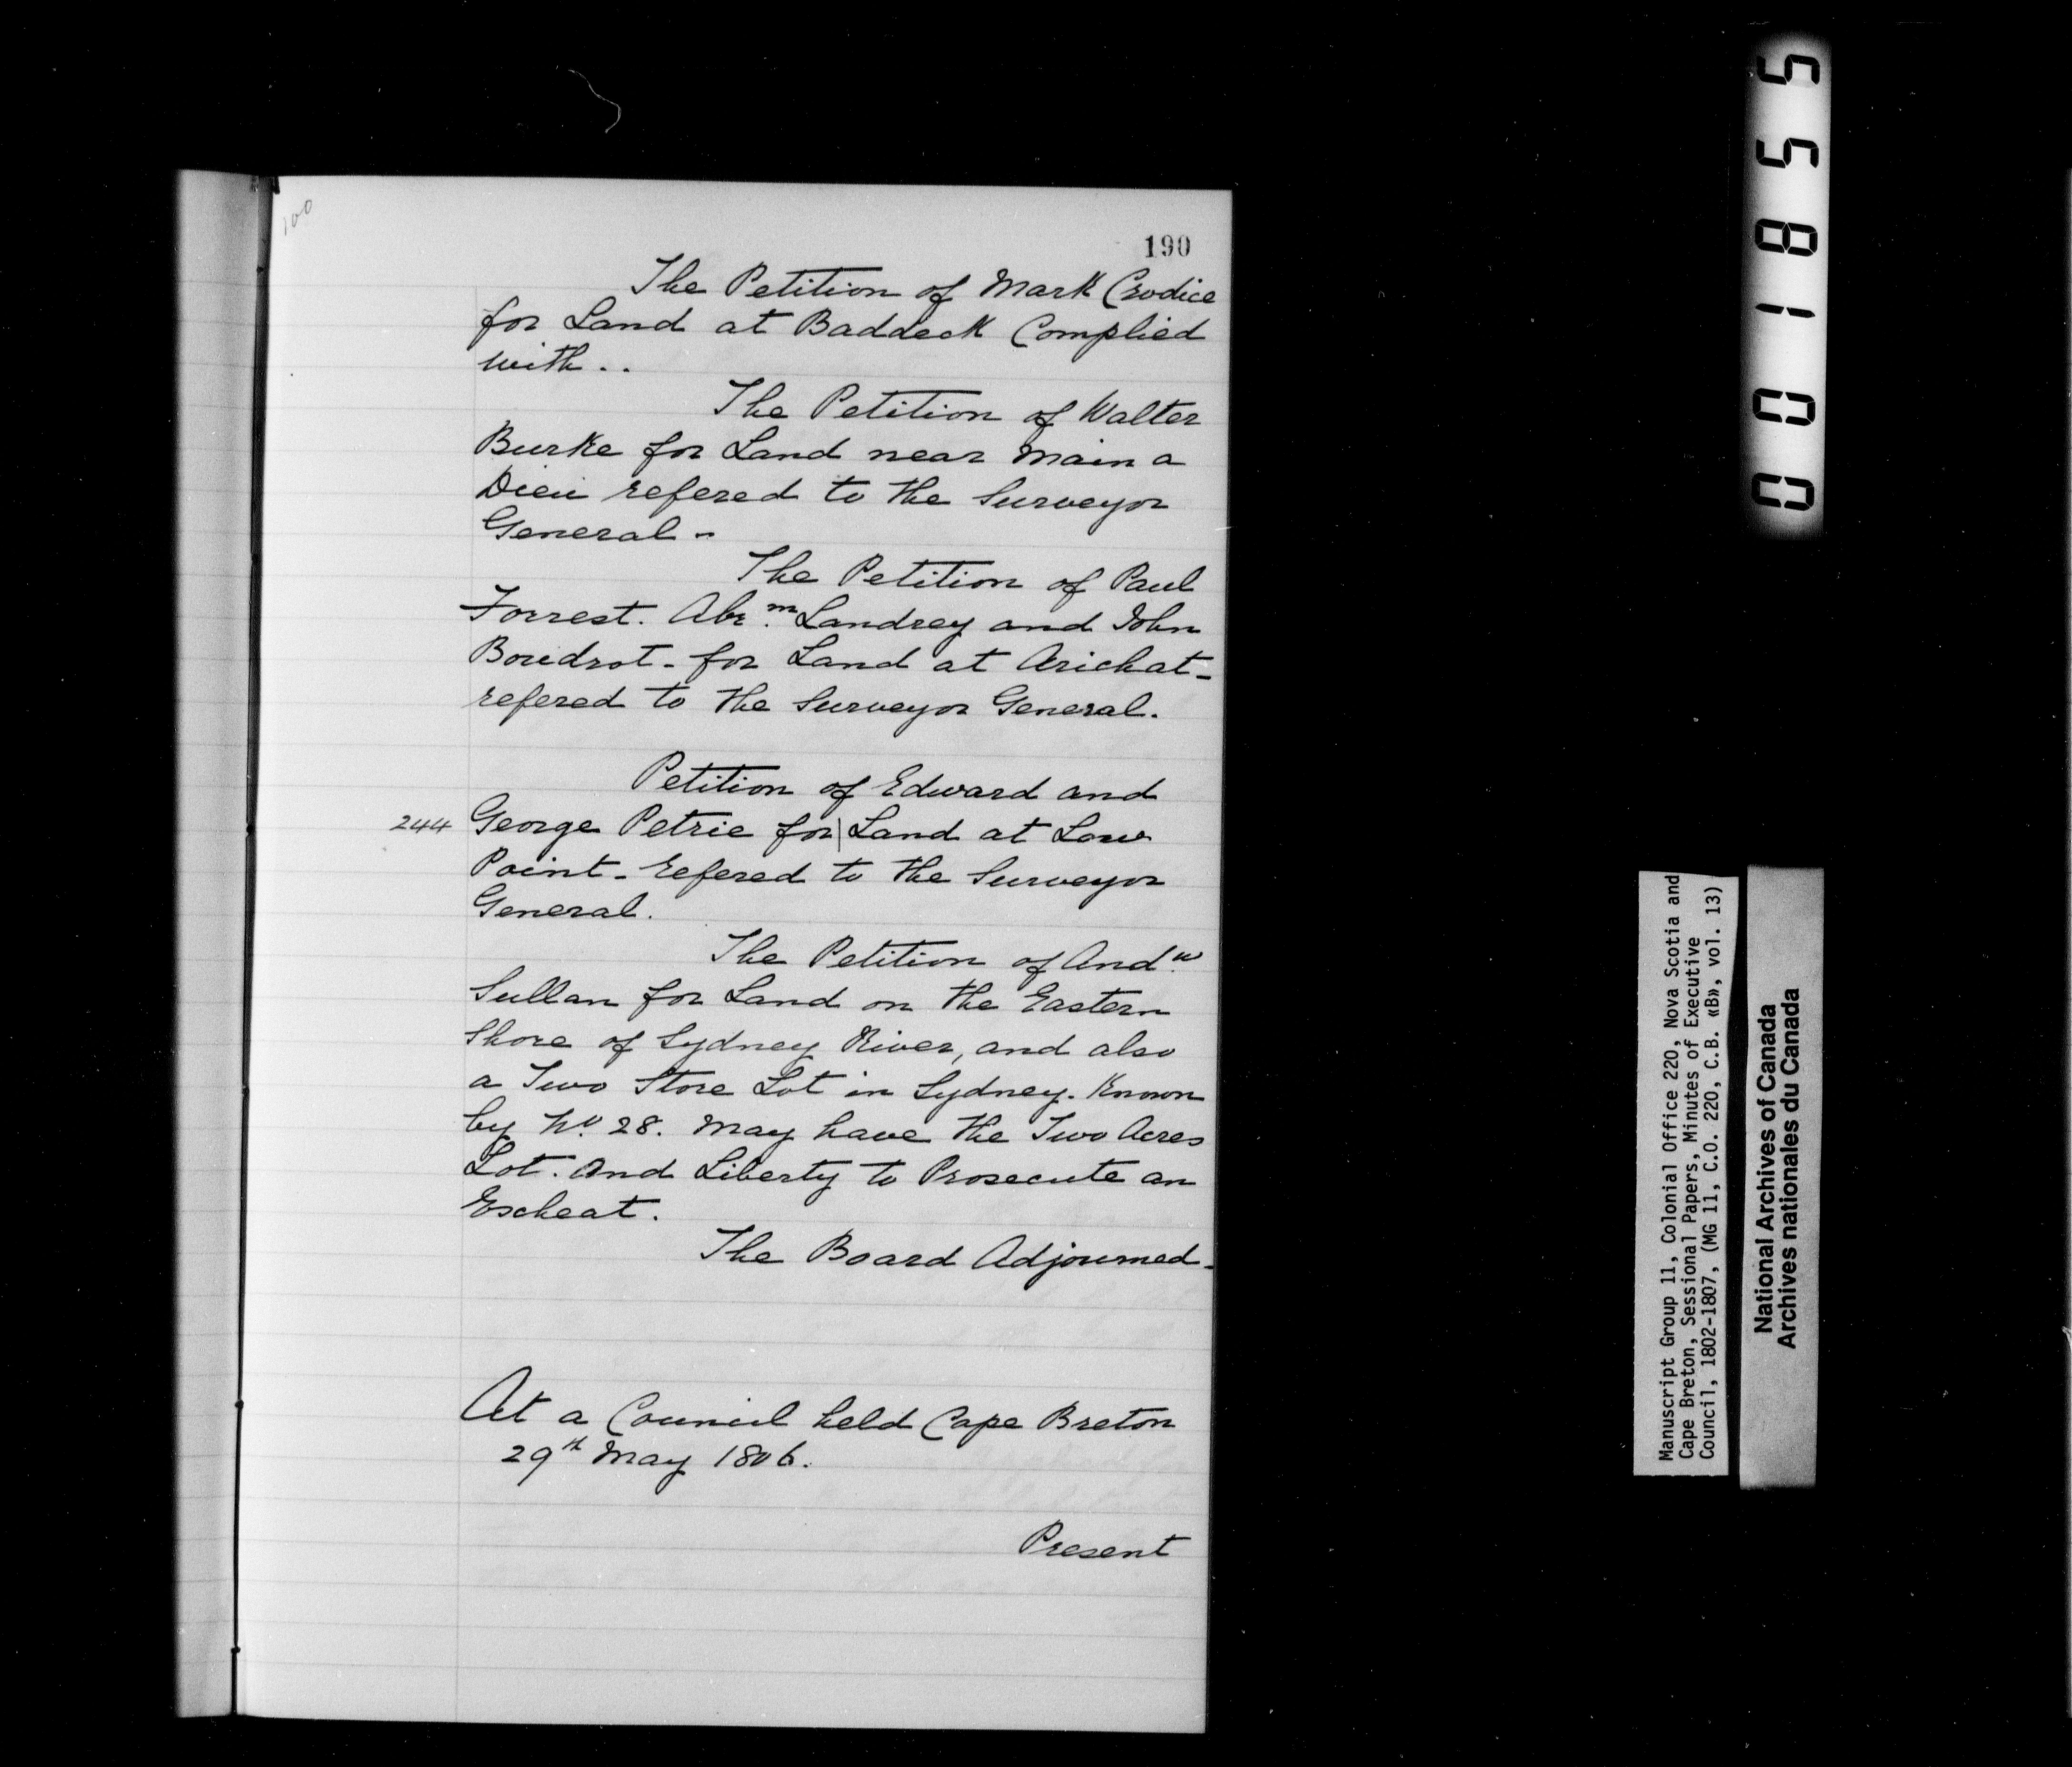 100
190
The Petition of Mark Crodice
for Land at Baddeck Complied
with..
The Petition of Walter
Burke for Land near Main a
Dieu refered to the Surveyor
General -
The Petition of Paul
Forrest. Abr.m Landrey and John
Boudrot - for Land at Arichat -
refered to the Surveyor General.
Petition of Edward and
244 George Petrie for | Land at Low
Point - refered to the Surveyor
General.
The Petition of Andw.
Sullan for Land on the Eastern
Shore of Sydney River, and also
a Two Store Lot in Sydney. Known
by No. 28. May have the Two Acres
Lot. And Liberty to Prosecute an
Escheat.
The Board Adjourned -
At a Council held Cape Breton
29th May 1806.
Present
001855
Manuscript Group 11, Colonial Office 220, Nova Scotia and
Cape Breton, Sessional Papers, Minutes of Executive
Council, 1802-1807, (MG 11, C.O. 220, C.B. «B», vol. 13)
National Archives of Canada
Archives nationales du Canada